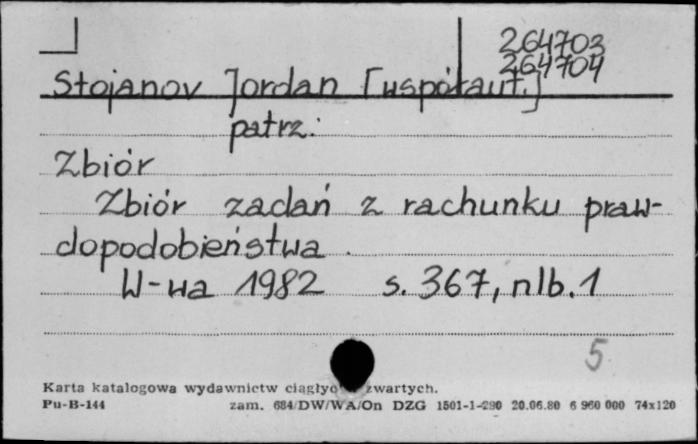 264703
264704
Stojanov Jordan [współaut.]
patrz:
Zbiór
Zbiór zadań z rachunku praw-
dopodobieństwa
W-wa 1982 s. 367, nlb. 1
5
Karta katalogowa wydawnictw ciągłyc zwartych.
Pu-B-144 zam. 684/DW/WA/On DZG 1501-1-290 20.06.80 6 960 000 74x120